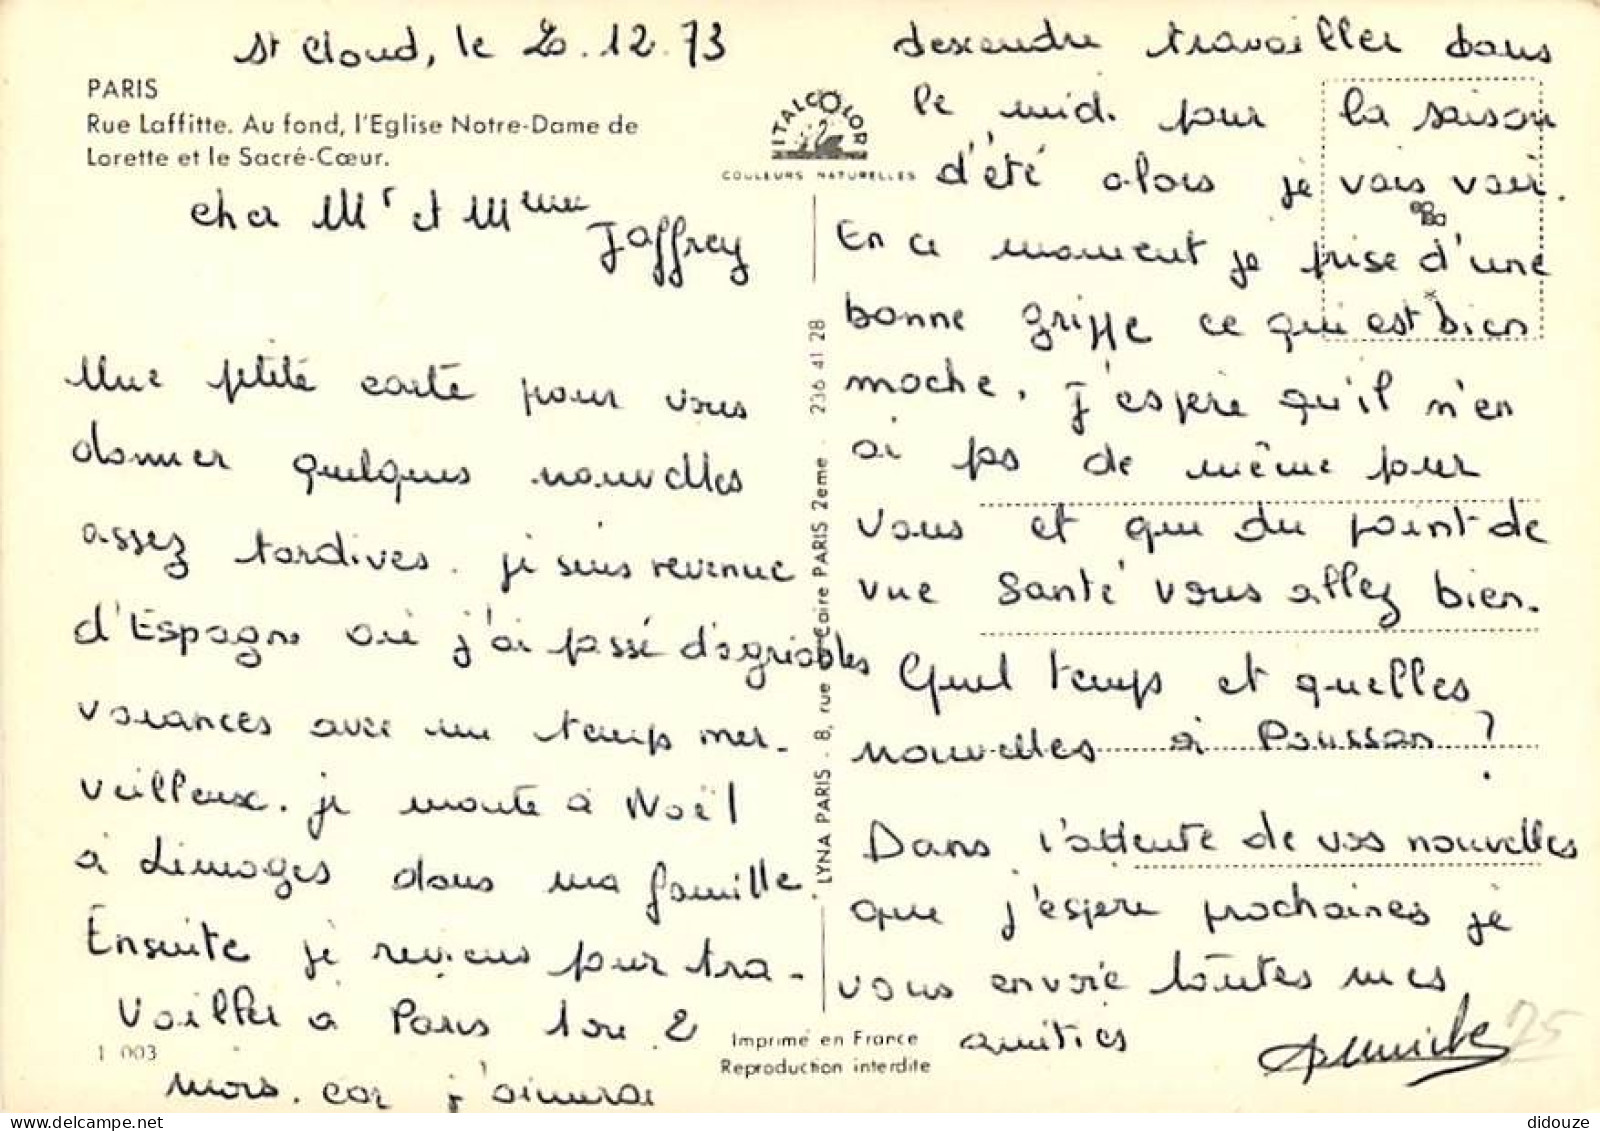 St Cloud, le 20.12.73
PARIS
Rue Laffitte. Au fond, l'Eglise Notre-Dame de
Lorette et le Sacré-Cœur.
Cher Mr et Mme
Jaffrey
Une petite carte pour vous
donner quelques nouvelles
assez tardives. je suis revenue
d'Espagne où j'ai passé d'agréables
vacances avec un temps mer-
veilleux. je monte à Noël
à Limoges dans ma famille
Ensuite je reviens pour tra-
vailler à Paris 1 ou 2
mois. car j'aimerai
1 003
ITALCOLOR
COULEURS NATURELLES
LYNA PARIS - 8, rue du Caire PARIS 2eme - 236 41 28
Imprimé en France
Reproduction interdite
descendre travailler dans
le midi pour la saison
d'été alors je vais voir.
En ce moment je frise d'une
bonne grippe ce qui est bien
moche. J'espère qu'il n'en
ai pas de même pour
vous et que du point de
vue santé vous allez bien.
Quel temps et quelles
nouvelles à Poussan ?
Dans l'attente de vos nouvelles
que j'espère prochaines je
vous envoie toutes mes
amitiés
75
didouze